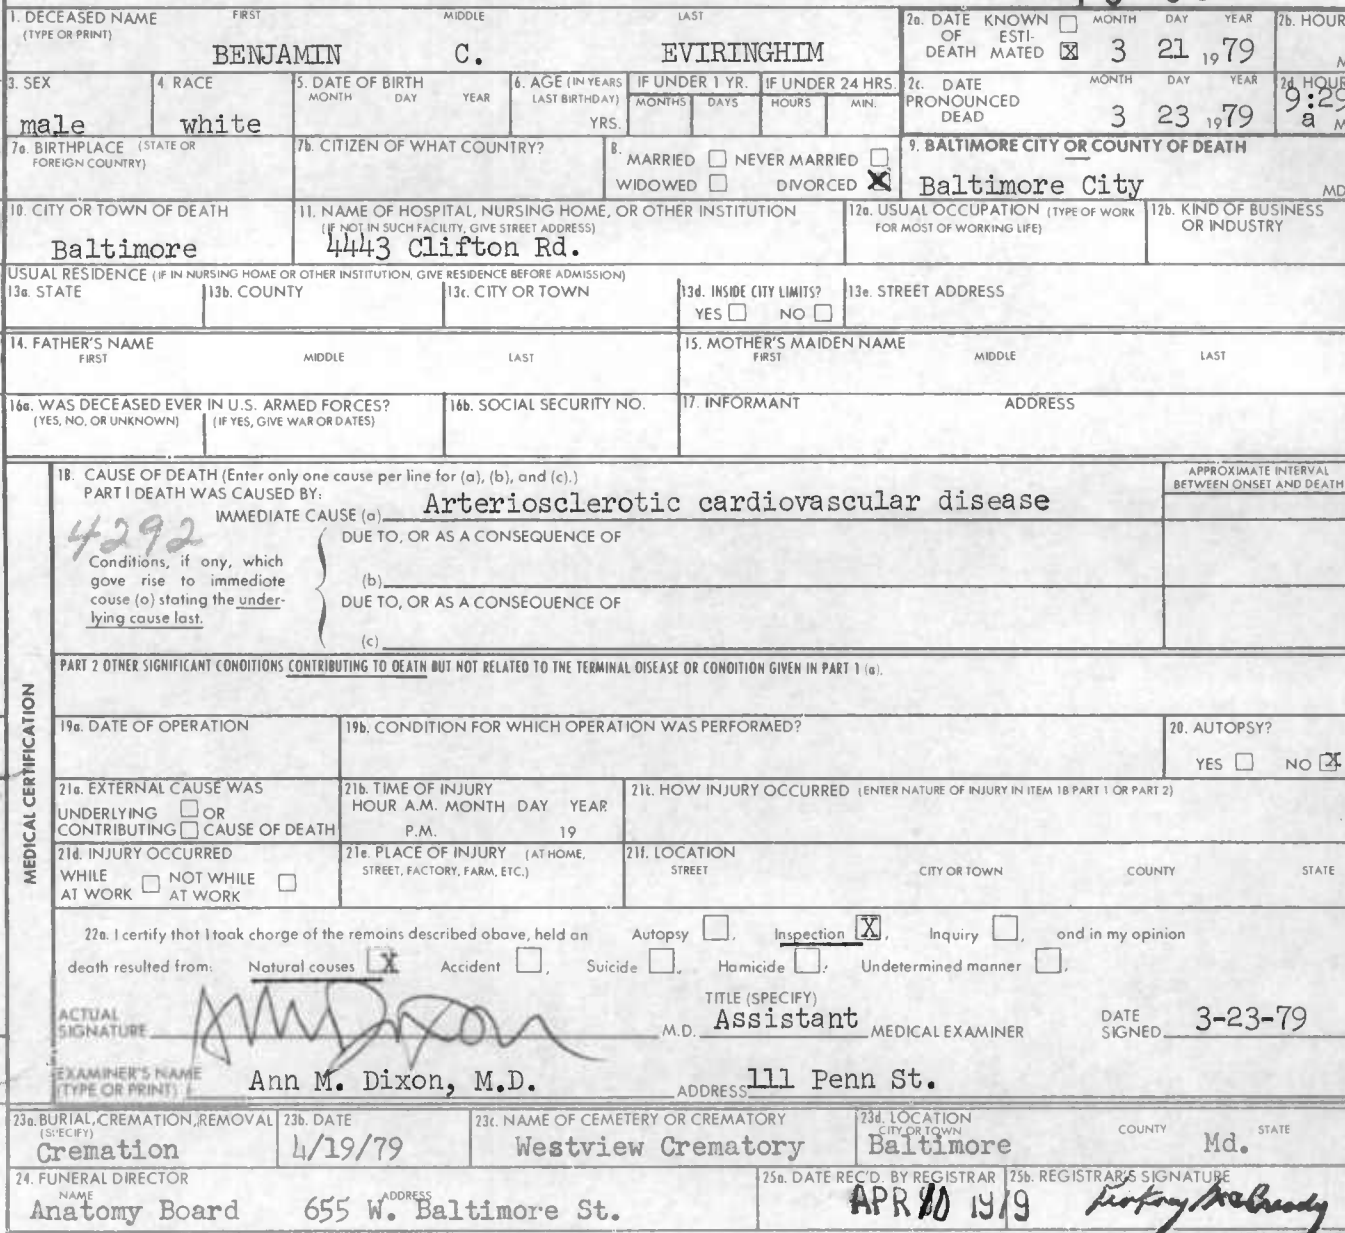 1. DECEASED NAME FIRST MIDDLE LAST
(TYPE OR PRINT)
BENJAMIN C. EVIRINGHIM
2a. DATE KNOWN ☐ MONTH DAY YEAR
OF ESTI-
DEATH MATED ☒ 3 21 1979
2b. HOUR
M
3. SEX
male
4. RACE
white
5. DATE OF BIRTH
MONTH DAY YEAR
6. AGE (IN YEARS
LAST BIRTHDAY)
YRS.
IF UNDER 1 YR.
MONTHS DAYS
IF UNDER 24 HRS.
HOURS MIN.
2c. DATE MONTH DAY YEAR
PRONOUNCED
DEAD 3 23 1979
2d. HOUR
9:29
a M
7a. BIRTHPLACE (STATE OR
FOREIGN COUNTRY)
7b. CITIZEN OF WHAT COUNTRY?
8.
MARRIED ☐ NEVER MARRIED ☐
WIDOWED ☐ DIVORCED ☒
9. BALTIMORE CITY OR COUNTY OF DEATH
Baltimore City MD
10. CITY OR TOWN OF DEATH
Baltimore
11. NAME OF HOSPITAL, NURSING HOME, OR OTHER INSTITUTION
(IF NOT IN SUCH FACILITY, GIVE STREET ADDRESS)
4443 Clifton Rd.
12a. USUAL OCCUPATION (TYPE OF WORK
FOR MOST OF WORKING LIFE)
12b. KIND OF BUSINESS
OR INDUSTRY
USUAL RESIDENCE (IF IN NURSING HOME OR OTHER INSTITUTION, GIVE RESIDENCE BEFORE ADMISSION)
13a. STATE
13b. COUNTY
13c. CITY OR TOWN
13d. INSIDE CITY LIMITS?
YES ☐ NO ☐
13e. STREET ADDRESS
14. FATHER'S NAME
FIRST MIDDLE LAST
15. MOTHER'S MAIDEN NAME
FIRST MIDDLE LAST
16a. WAS DECEASED EVER IN U.S. ARMED FORCES?
(YES, NO, OR UNKNOWN) (IF YES, GIVE WAR OR DATES)
16b. SOCIAL SECURITY NO.
17. INFORMANT ADDRESS
MEDICAL CERTIFICATION
18. CAUSE OF DEATH (Enter only one cause per line for (a), (b), and (c).)
PART I DEATH WAS CAUSED BY:
IMMEDIATE CAUSE (a) Arteriosclerotic cardiovascular disease
APPROXIMATE INTERVAL
BETWEEN ONSET AND DEATH
4292
DUE TO, OR AS A CONSEQUENCE OF
Conditions, if any, which
gove rise to immediate
couse (o) stating the under-
lying cause last.
(b)
DUE TO, OR AS A CONSEQUENCE OF
(c)
PART 2 OTHER SIGNIFICANT CONDITIONS CONTRIBUTING TO DEATH BUT NOT RELATED TO THE TERMINAL DISEASE OR CONDITION GIVEN IN PART 1 (a).
19a. DATE OF OPERATION
19b. CONDITION FOR WHICH OPERATION WAS PERFORMED?
20. AUTOPSY?
YES ☐ NO ☒
21a. EXTERNAL CAUSE WAS
UNDERLYING ☐ OR
CONTRIBUTING ☐ CAUSE OF DEATH
21b. TIME OF INJURY
HOUR A.M. MONTH DAY YEAR
P.M. 19
21c. HOW INJURY OCCURRED (ENTER NATURE OF INJURY IN ITEM 18 PART 1 OR PART 2)
21d. INJURY OCCURRED
WHILE ☐ NOT WHILE ☐
AT WORK AT WORK
21e. PLACE OF INJURY (AT HOME,
STREET, FACTORY, FARM, ETC.)
21f. LOCATION
STREET CITY OR TOWN COUNTY STATE
22a. I certify that I took charge of the remoins described obove, held on Autopsy ☐, Inspection ☒, Inquiry ☐, ond in my opinion
death resulted from: Natural couses ☒ Accident ☐, Suicide ☐, Homicide ☐, Undetermined manner ☐.
ACTUAL
SIGNATURE AM Dixon M.D.
TITLE (SPECIFY)
Assistant MEDICAL EXAMINER
DATE
SIGNED 3-23-79
EXAMINER'S NAME
(TYPE OR PRINT) Ann M. Dixon, M.D. ADDRESS 111 Penn St.
23a. BURIAL, CREMATION, REMOVAL
(SPECIFY)
Cremation
23b. DATE
4/19/79
23c. NAME OF CEMETERY OR CREMATORY
Westview Crematory
23d. LOCATION
CITY OR TOWN COUNTY STATE
Baltimore Md.
24. FUNERAL DIRECTOR
NAME ADDRESS
Anatomy Board 655 W. Baltimore St.
25a. DATE REC'D. BY REGISTRAR
APR 10 1979
25b. REGISTRAR'S SIGNATURE